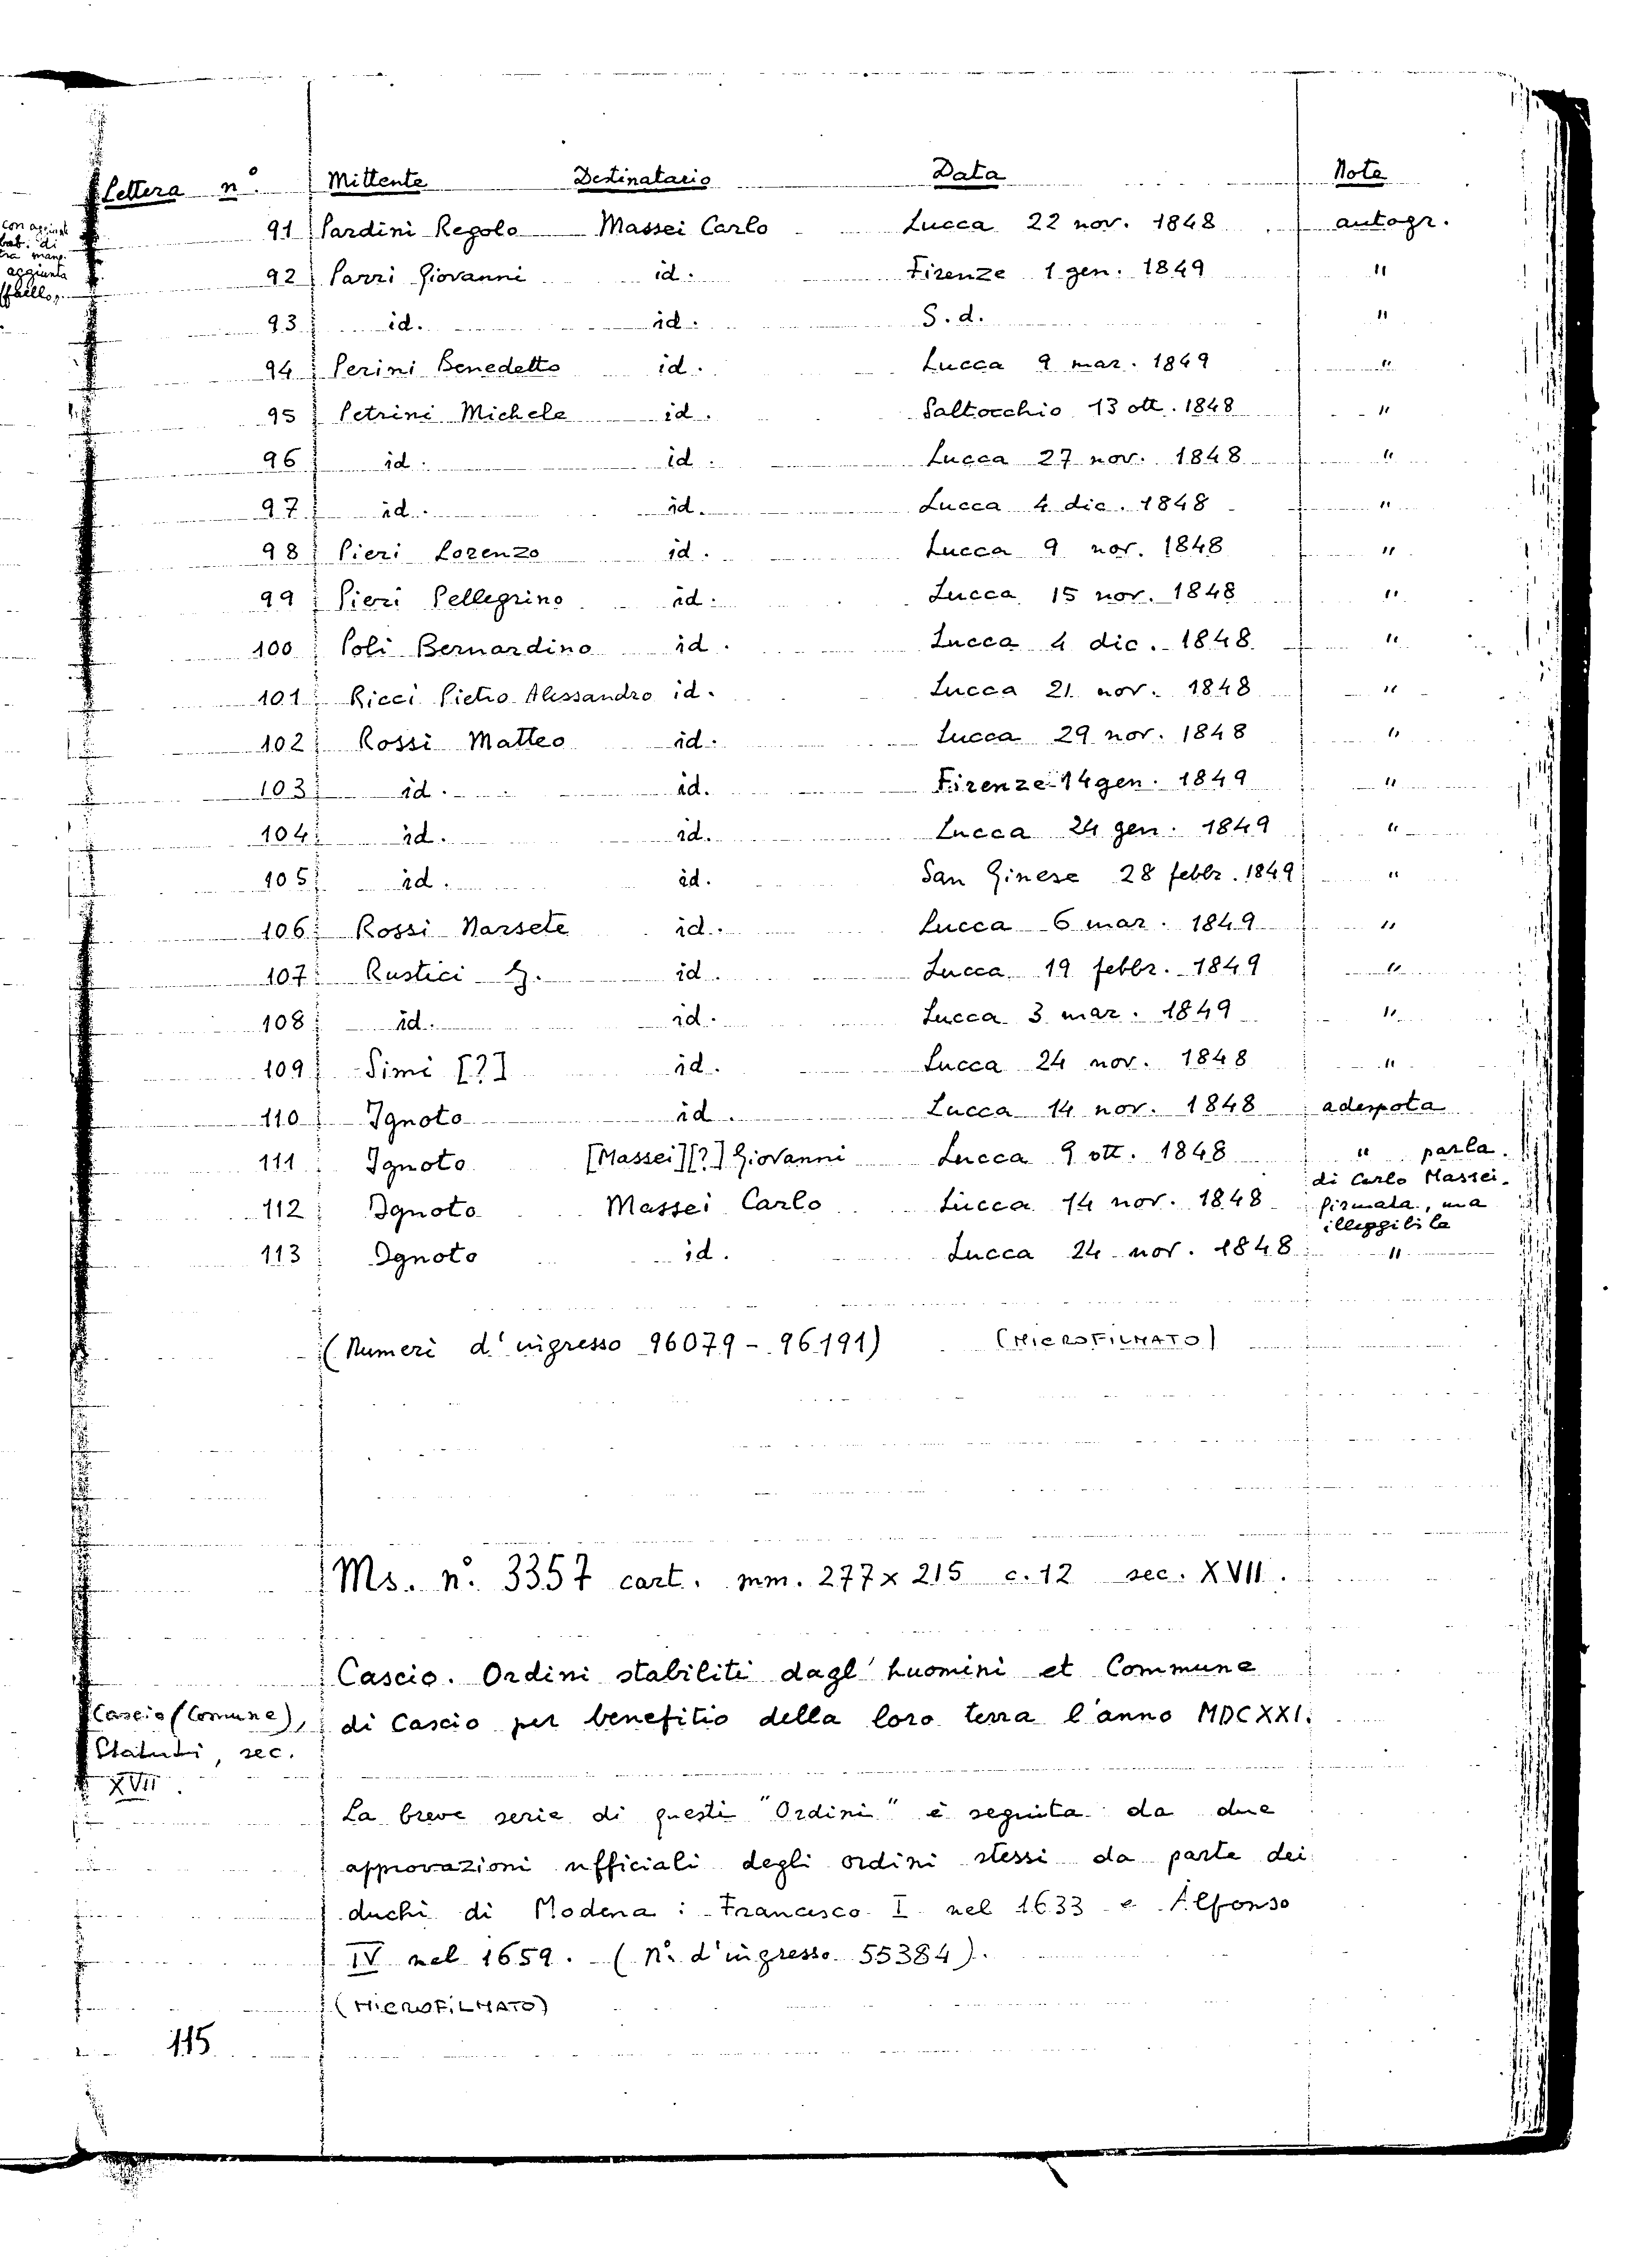 Lettera n°. Mittente Destinatario Data Note
91 Pardini Regolo Massei Carlo Lucca 22 nov. 1848 autogr.
92 Parri Giovanni id. Firenze 1 gen. 1849 "
93 id. id. S. d. "
94 Perini Benedetto id. Lucca 9 mar. 1849 "
95 Petrini Michele id. Saltocchio 13 ott. 1848 "
96 id. id. Lucca 27 nov. 1848 "
97 id. id. Lucca 4 dic. 1848 "
98 Pieri Lorenzo id. Lucca 9 nov. 1848 "
99 Pieri Pellegrino id. Lucca 15 nov. 1848 "
100 Poli Bernardino id. Lucca 4 dic. 1848 "
101 Ricci Pietro Alessandro id. Lucca 21 nov. 1848 "
102 Rossi Matteo id. Lucca 29 nov. 1848 "
103 id. id. Firenze 14 gen. 1849 "
104 id. id. Lucca 24 gen. 1849 "
105 id. id. San Ginese 28 febbr. 1849 "
106 Rossi Narsete id. Lucca 6 mar. 1849 "
107 Rustici G. id. Lucca 19 febbr. 1849 "
108 id. id. Lucca 3 mar. 1849 "
109 Simi [?] id. Lucca 24 nov. 1848 "
110 Ignoto id. Lucca 14 nov. 1848 adespota
111 Ignoto [Massei][?] Giovanni Lucca 9 ott. 1848 " parla
di Carlo Massei.
112 Ignoto Massei Carlo Lucca 14 nov. 1848 firmata, ma
illeggibile
113 Ignoto id. Lucca 24 nov. 1848 "
(Numeri d'ingresso 96079 - 96191) (MICROFILMATO)
Ms. n°. 3357 cart. mm. 277 x 215 c. 12 sec. XVII.
Cascio. Ordini stabiliti dagl' huomini et Commune
di Cascio per benefitio della loro terra l'anno MDCXXI.
Cascio (Comune),
Statuti, sec.
XVII.
La breve serie di questi "Ordini" è seguita da due
approvazioni ufficiali degli ordini stessi da parte dei
duchi di Modena: Francesco I nel 1633 e Alfonso
IV nel 1659. (N°. d'ingresso 55384).
(MICROFILMATO)
115